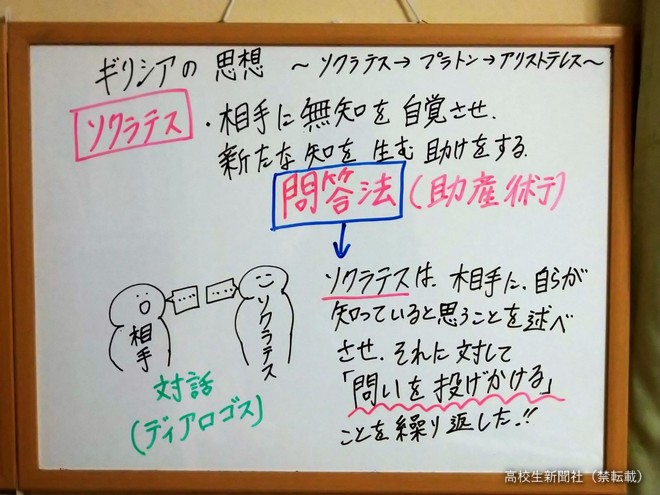 ギリシアの思想 〜ソクラテス→プラトン→アリストテレス〜
ソクラテス
・相手に無知を自覚させ、
新たな知を生む助けをする。
問答法(助産術)
ソクラテスは、相手に、自らが
知っていると思うことを述べ
させ、それに対して
「問いを投げかける」
ことを繰り返した!!
相手
....
....
ソクラテス
対話
(ディアロゴス)
高校生新聞社(禁転載)